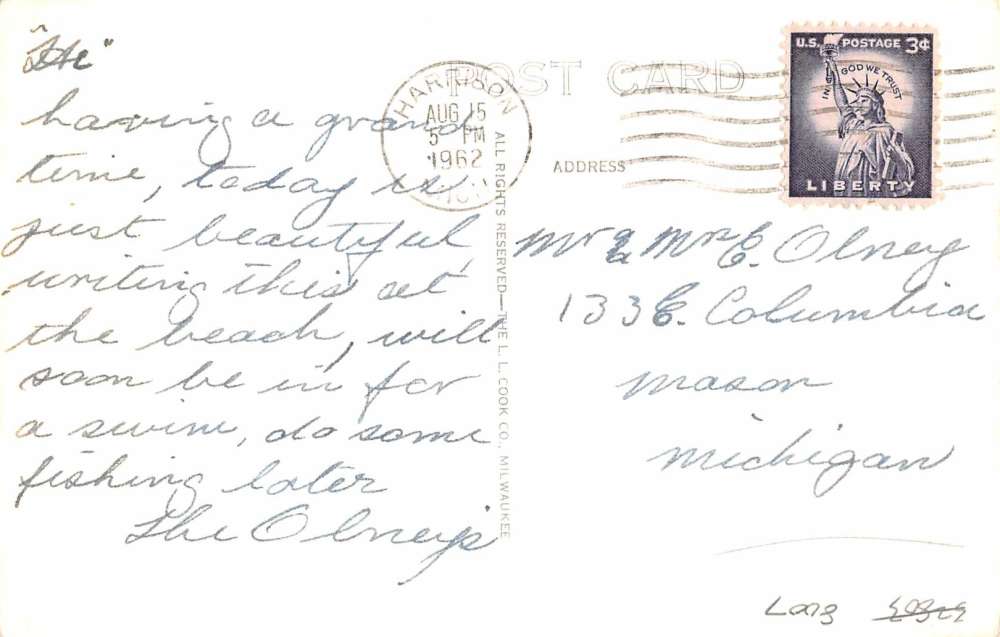 "Hi"
having a grand
time, today is
just beautiful,
writing this at
the beach, will
soon be in for
a swim, do some
fishing later
The Olney's
POST CARD
HARRISON
AUG 15
5 - PM
1962
MICH
ALL RIGHTS RESERVED—THE L. L. COOK CO., MILWAUKEE
ADDRESS
U.S. POSTAGE 3¢
IN GOD WE TRUST
LIBERTY
Mr & Mrs E. Olney
133 E. Columbia
Mason
Michigan